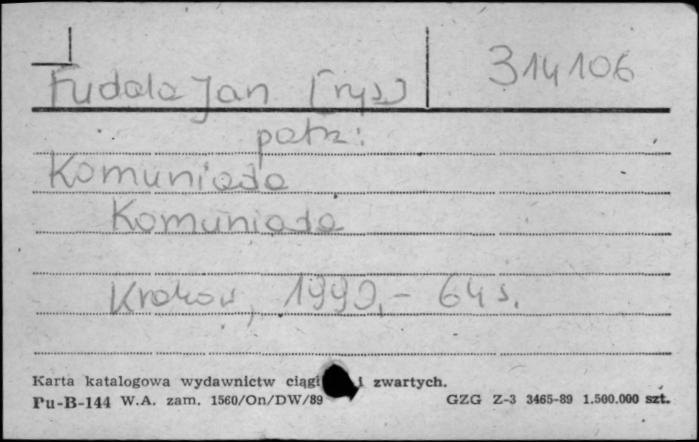 Fudala Jan [rys]
314106
patrz:
Komuniada
Komuniada
Kraków, 1990.- 64 s.
Karta katalogowa wydawnictw ciągł i zwartych.
Pu-B-144 W.A. zam. 1560/On/DW/89
GZG Z-3 3465-89 1.500.000 szt.